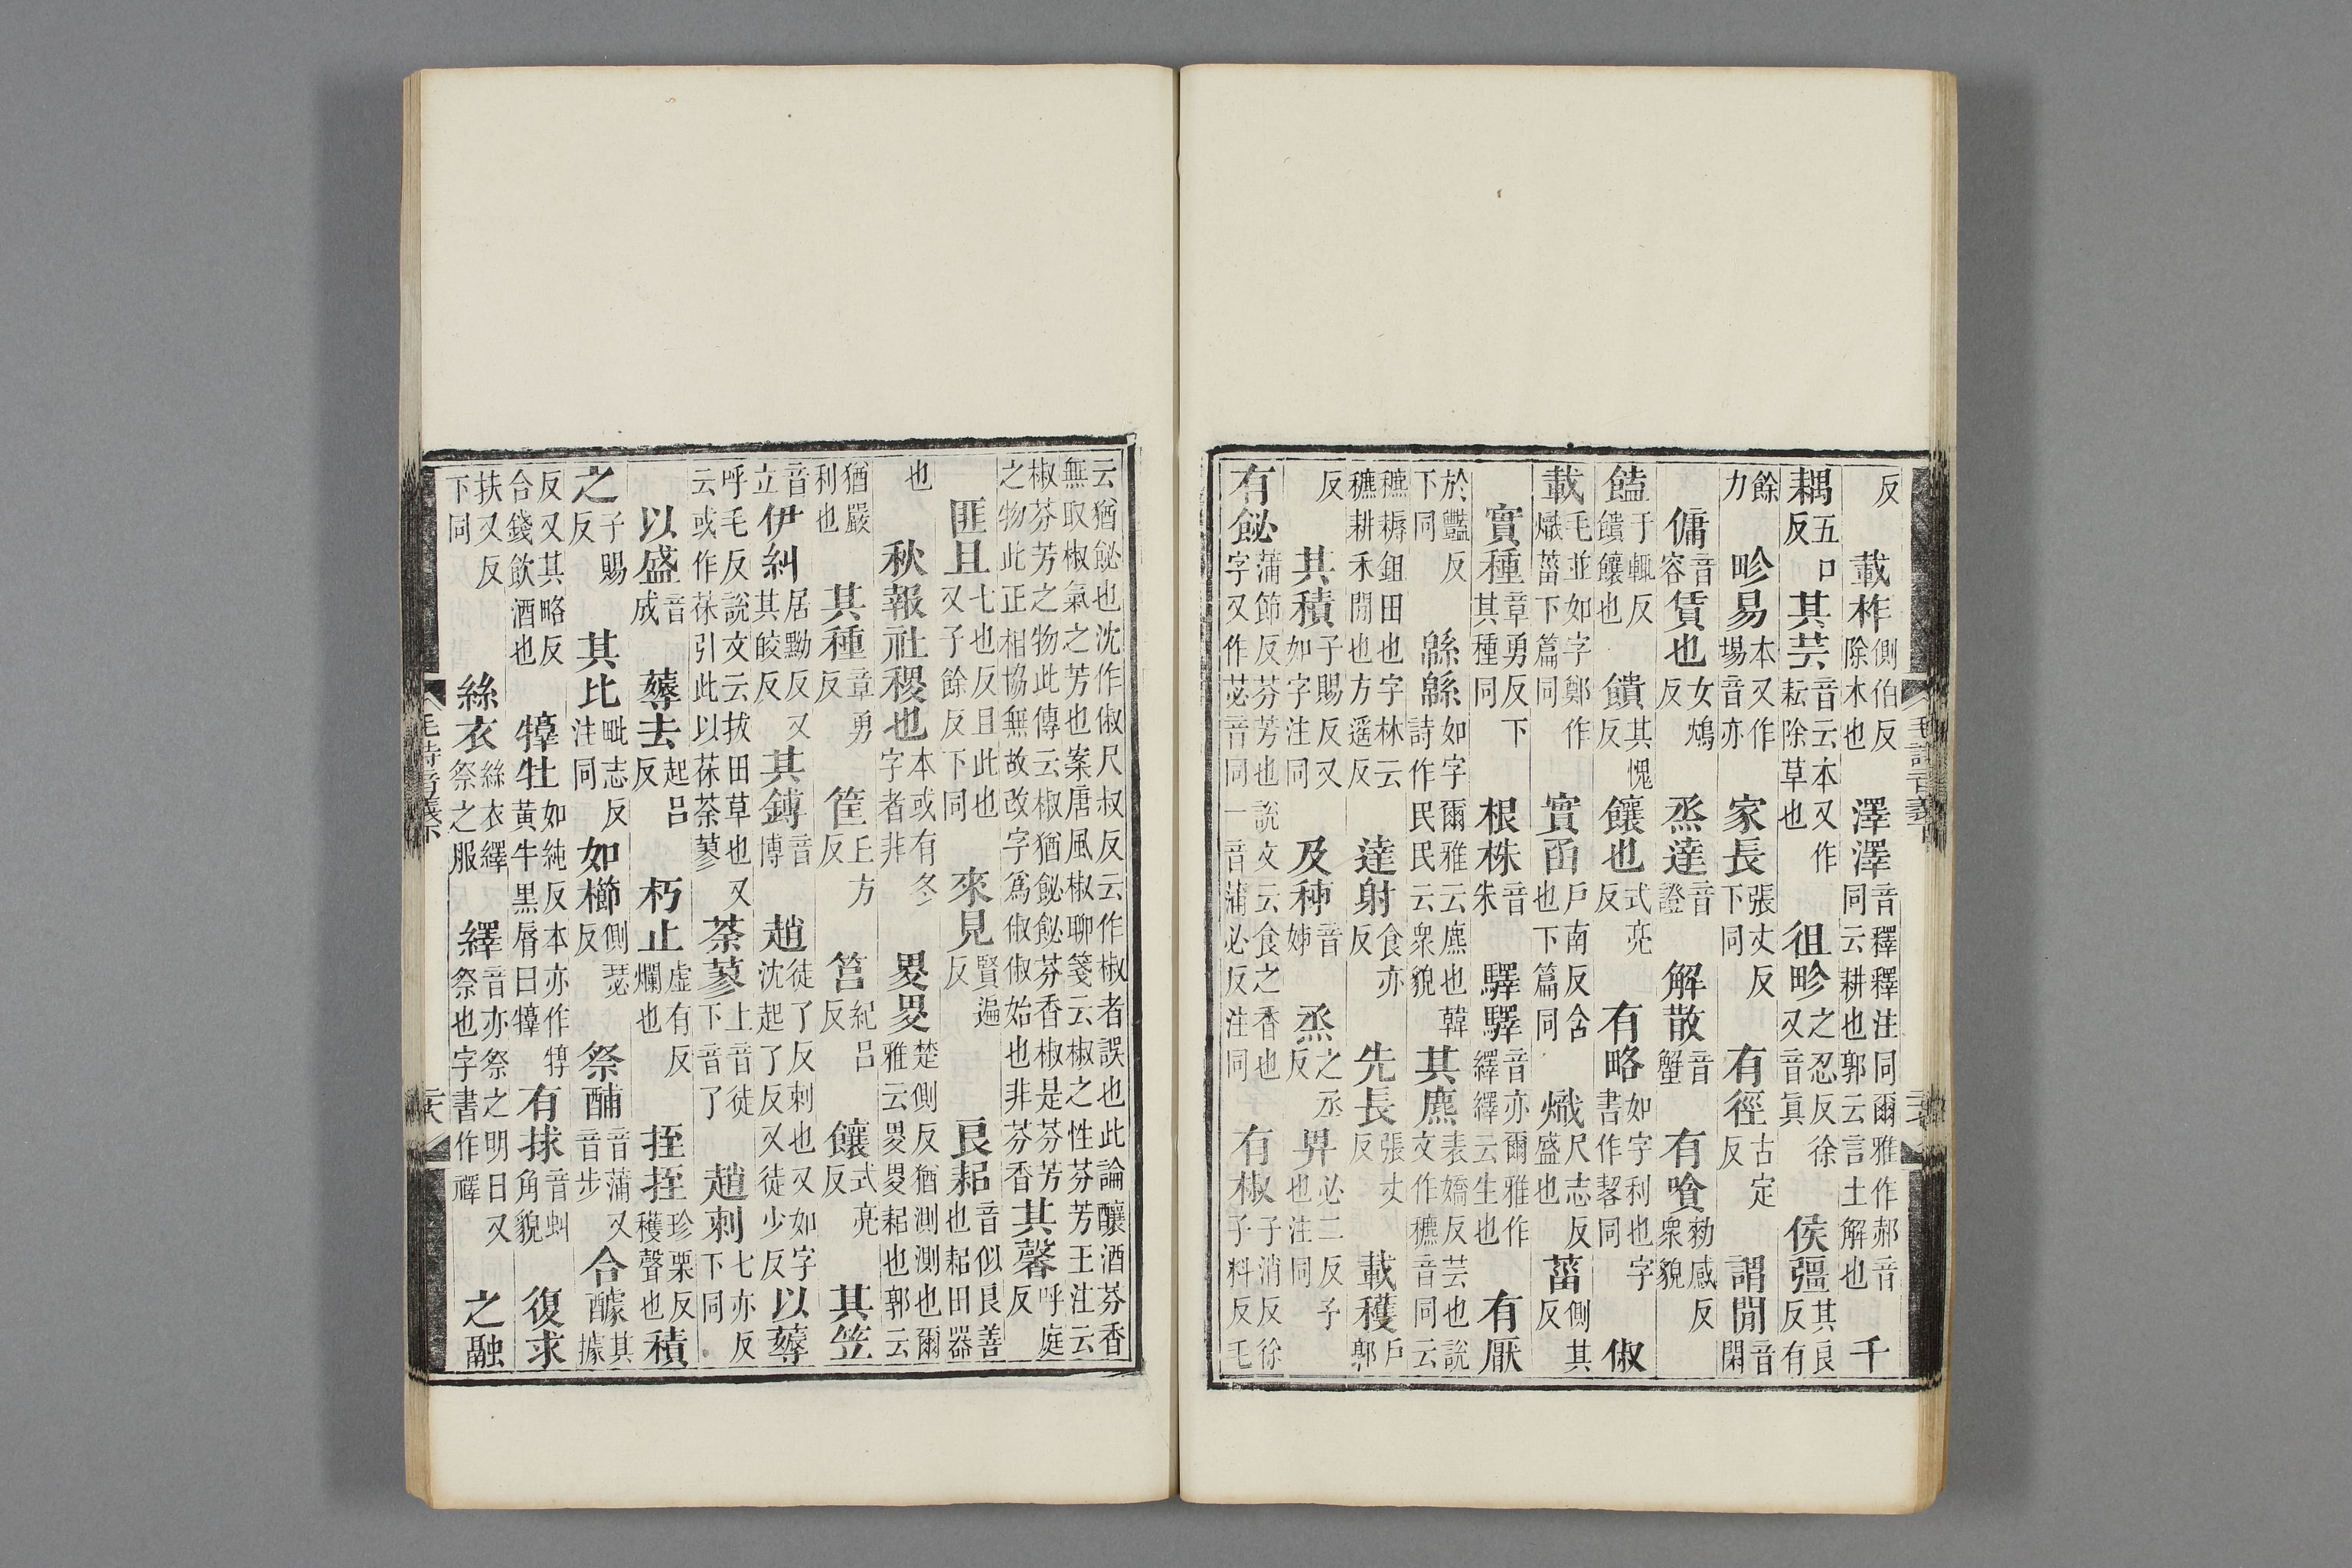 反　載柞側伯反除木也　澤澤音釋釋注同爾雅作郝音同云耕也郭云言土解也　千
耦五口反　其芸音云本又作耘除草也　徂畛之忍反徐又音真　侯彊其良反有
餘力　畛易本又作場音亦　家長張丈反下同　有徑古定反　謂閒音閑
傭音容　賃也女鴆反　烝達音證　解散音蟹　有噲勑感反衆貌
饁于輒反饋饟也　饋其愧反　饟也式亮反　有略如字利也字書作䂮同　俶
載毛並如字鄭作熾菑下篇同　實函戶南反含也下篇同　熾尺志反盛也　菑側其反
實種章勇反下其種同　根株音朱　驛驛音亦爾雅作繹繹云生也　有厭
於豔反下同　緜緜如字爾雅云麃也韓詩作民民云衆貌　其麃表嬌反芸也說文作穮音同云
穮耨鉏田也字林云穮耕禾閒也方遥反　達射食亦反　先長張丈反　載穫戶郭
反　其積子賜反又如字注同　及秭音姊　烝之丞反　畀必二反予也注同
有飶蒲節反芬芳也說文云食之香也字又作苾音同一音蒲必反注同　有椒子消反徐子料反毛
云猶飶也沈作俶尺叔反云作椒者誤也此論釀酒芬香無取椒氣之芳也案唐風椒聊箋云椒之性芬芳王注云
椒芬芳之物此傳云椒猶飶飶芬香椒是芬芳之物此正相協無故改字爲俶俶始也非芬香　其馨呼庭反
匪且七也反且此也又子餘反下同　來見賢遍反　良耜音似良善也耜田器
也　秋報社稷也本或有冬字者非　畟畟楚側反猶測測也爾雅云畟畟耜也郭云
猶嚴利也　其種章勇反　筐丘方反　筥紀呂反　饟式亮反　其笠
音立　伊糾居黝反又其皎反　其鎛音博　趙徒了反刺也又如字沈起了反又徒少反　以薅
呼毛反說文云拔田草也又云或作茠引此以茠荼蓼　荼蓼上音徒下音了　趙刺七亦反下同
以盛音成　薅去起呂反　朽止虛有反爛也　挃挃珍栗反穫聲也　積
之子賜反　其比毗志反注同　如櫛側瑟反　祭酺音蒲又音步　合醵其據
反又其略反合錢飲酒也　犉牡如純反本亦作犉黃牛黑脣曰犉　有捄音虯角貌　復求
扶又反下同　絲衣絲衣繹祭之服　繹音亦祭之明日又祭也字書作襗　之融
毛詩音義下